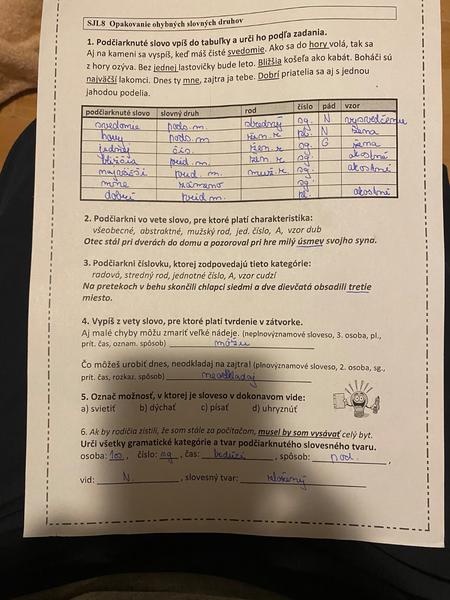 SJL8 Opakovanie ohybných slovných druhov
1. Podčiarknuté slovo vpíš do tabuľky a urči ho podľa zadania.
Aj na kameni sa vyspíš, keď máš čisté svedomie. Ako sa do hory volá, tak sa
z hory ozýva. Bez jednej lastovičky bude leto. Bližšia košeľa ako kabát. Boháči sú
najväčší lakomci. Dnes ty mne, zajtra ja tebe. Dobrí priatelia sa aj s jednou
jahodou podelia.
podčiarknuté slovo slovný druh rod číslo pád vzor
svedomie pods. m. stredný sg. N vysvedčenie
hory pods. m. žen. r. pl. N žena
jednej čís. žen. r. sg. G žena
bližšia príd. m. žen. r. sg. akostné
najväčší príd. m. muž. r. akostné
mne zámeno sg.
dobrí príd. m. pl. akostné
2. Podčiarkni vo vete slovo, pre ktoré platí charakteristika:
všeobecné, abstraktné, mužský rod, jed. číslo, A, vzor dub
Otec stál pri dverách do domu a pozoroval pri hre milý úsmev svojho syna.
3. Podčiarkni číslovku, ktorej zodpovedajú tieto kategórie:
radová, stredný rod, jednotné číslo, A, vzor cudzí
Na pretekoch v behu skončili chlapci siedmi a dve dievčatá obsadili tretie
miesto.
4. Vypíš z vety slovo, pre ktoré platí tvrdenie v zátvorke.
Aj malé chyby môžu zmariť veľké nádeje. (neplnovýznamové sloveso, 3. osoba, pl.,
prít. čas, oznam. spôsob) môžu
Čo môžeš urobiť dnes, neodkladaj na zajtra! (plnovýznamové sloveso, 2. osoba, sg.,
prít. čas, rozkaz. spôsob) neodkladaj
5. Označ možnosť, v ktorej je sloveso v dokonavom vide:
a) svietiť b) dýchať c) písať d) uhryznúť
6. Ak by rodičia zistili, že som stále za počítačom, musel by som vysávať celý byt.
Urči všetky gramatické kategórie a tvar podčiarknutého slovesného tvaru.
osoba: 1os., číslo: sg., čas: budúci, spôsob: pod.,
vid: N., slovesný tvar: zložený